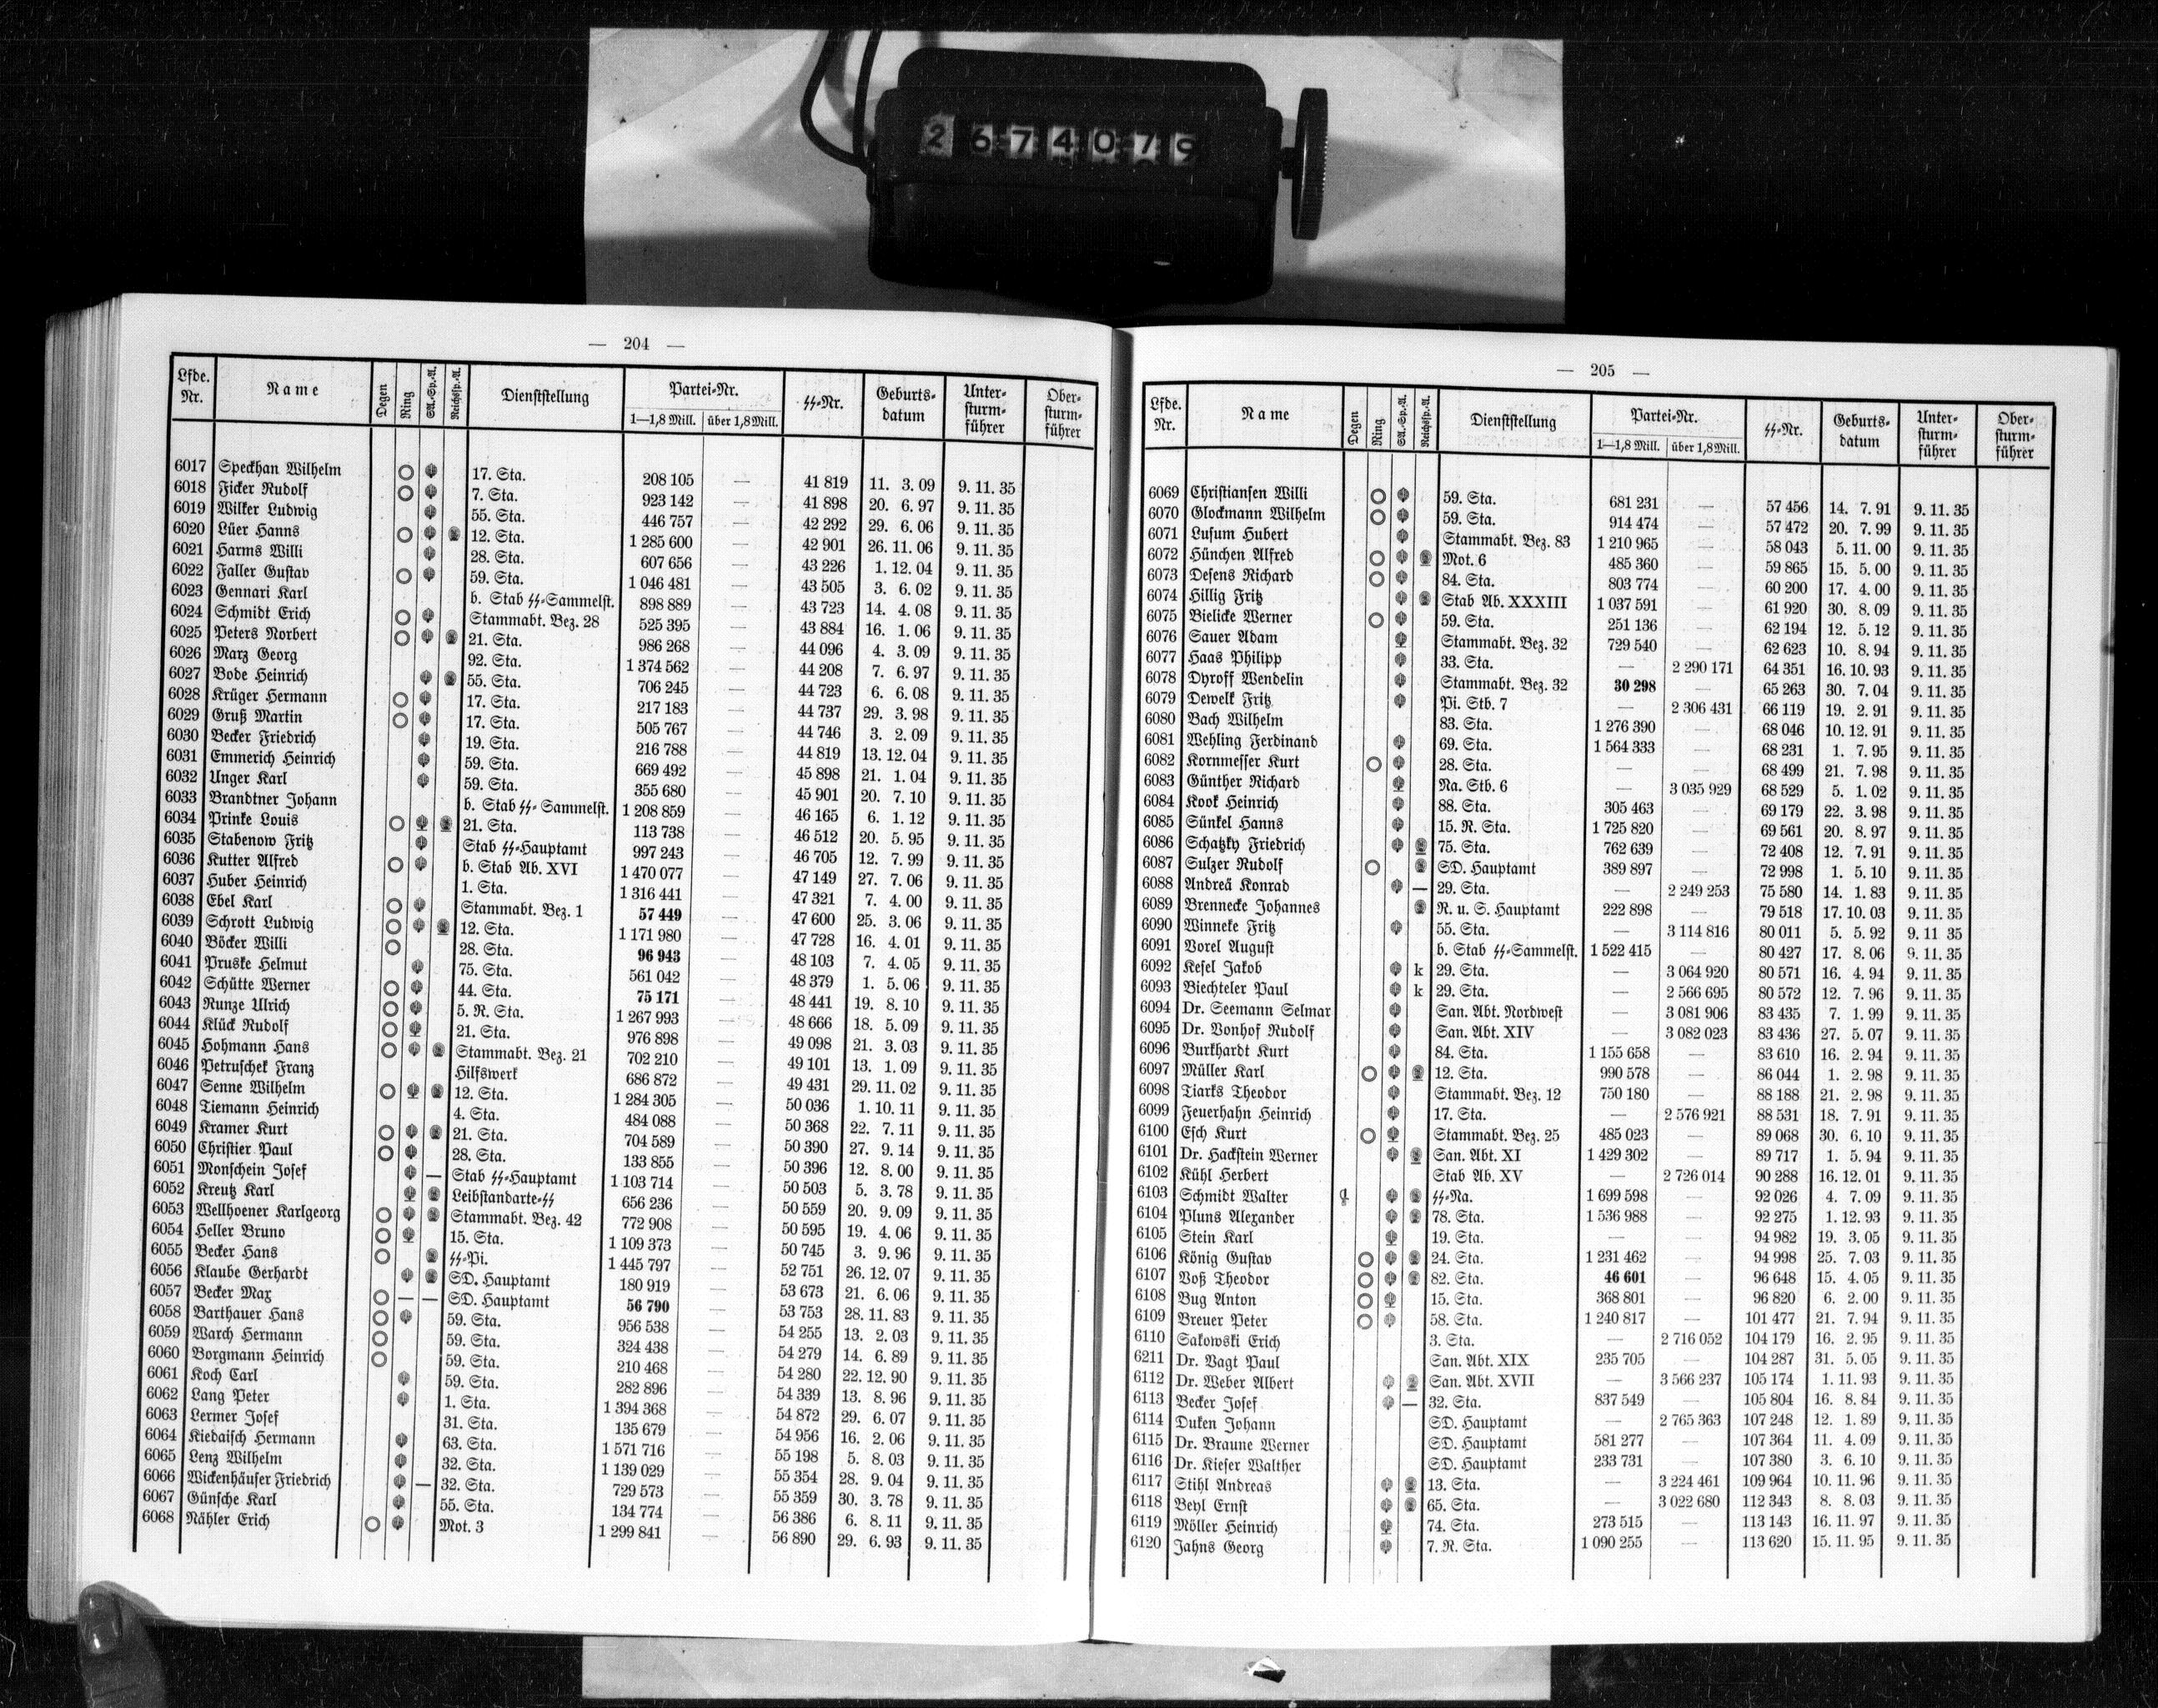 2674079
— 204 —
Lfde. Nr. Name Degen Ring SA.-Sp.-A. Reichssp.-A. Dienststellung Partei-Nr. 1—1,8 Mill. über 1,8 Mill. SS-Nr. Geburts-datum Unter-sturm-führer Ober-sturm-führer
6017 Speckhan Wilhelm 17. Sta. 208 105 — 41 819 11. 3. 09 9. 11. 35
6018 Ficker Rudolf 7. Sta. 923 142 — 41 898 20. 6. 97 9. 11. 35
6019 Wilker Ludwig 55. Sta. 446 757 — 42 292 29. 6. 06 9. 11. 35
6020 Lüer Hanns 12. Sta. 1 285 600 — 42 901 26. 11. 06 9. 11. 35
6021 Harms Willi 28. Sta. 607 656 — 43 226 1. 12. 04 9. 11. 35
6022 Faller Gustav 59. Sta. 1 046 481 — 43 505 3. 6. 02 9. 11. 35
6023 Gennari Karl b. Stab SS-Sammelst. 898 889 — 43 723 14. 4. 08 9. 11. 35
6024 Schmidt Erich Stammabt. Bez. 28 525 395 — 43 884 16. 1. 06 9. 11. 35
6025 Peters Norbert 21. Sta. 986 268 — 44 096 4. 3. 09 9. 11. 35
6026 Marz Georg 92. Sta. 1 374 562 — 44 208 7. 6. 97 9. 11. 35
6027 Bode Heinrich 55. Sta. 706 245 — 44 723 6. 6. 08 9. 11. 35
6028 Krüger Hermann 17. Sta. 217 183 — 44 737 29. 3. 98 9. 11. 35
6029 Gruß Martin 17. Sta. 505 767 — 44 746 3. 2. 09 9. 11. 35
6030 Becker Friedrich 19. Sta. 216 788 — 44 819 13. 12. 04 9. 11. 35
6031 Emmerich Heinrich 59. Sta. 669 492 — 45 898 21. 1. 04 9. 11. 35
6032 Unger Karl 59. Sta. 355 680 — 45 901 20. 7. 10 9. 11. 35
6033 Brandtner Johann b. Stab SS-Sammelst. 1 208 859 — 46 165 6. 1. 12 9. 11. 35
6034 Prinke Louis 21. Sta. 113 738 — 46 512 20. 5. 95 9. 11. 35
6035 Stabenow Fritz Stab SS-Hauptamt 997 243 — 46 705 12. 7. 99 9. 11. 35
6036 Kutter Alfred b. Stab Ab. XVI 1 470 077 — 47 149 27. 7. 06 9. 11. 35
6037 Huber Heinrich 1. Sta. 1 316 441 — 47 321 7. 4. 00 9. 11. 35
6038 Ebel Karl Stammabt. Bez. 1 57 449 — 47 600 25. 3. 06 9. 11. 35
6039 Schrott Ludwig 12. Sta. 1 171 980 — 47 728 16. 4. 01 9. 11. 35
6040 Böcker Willi 28. Sta. 96 943 — 48 103 7. 4. 05 9. 11. 35
6041 Pruske Helmut 75. Sta. 561 042 — 48 379 1. 5. 06 9. 11. 35
6042 Schütte Werner 44. Sta. 75 171 — 48 441 19. 8. 10 9. 11. 35
6043 Runze Ulrich 5. R. Sta. 1 267 993 — 48 666 18. 5. 09 9. 11. 35
6044 Klück Rudolf 21. Sta. 976 898 — 49 098 21. 3. 03 9. 11. 35
6045 Hohmann Hans Stammabt. Bez. 21 702 210 — 49 101 13. 1. 09 9. 11. 35
6046 Petruschek Franz Hilfswerk 686 872 — 49 431 29. 11. 02 9. 11. 35
6047 Senne Wilhelm 12. Sta. 1 284 305 — 50 036 1. 10. 11 9. 11. 35
6048 Tiemann Heinrich 4. Sta. 484 088 — 50 368 22. 7. 11 9. 11. 35
6049 Kramer Kurt 21. Sta. 704 589 — 50 390 27. 9. 14 9. 11. 35
6050 Christier Paul 28. Sta. 133 855 — 50 396 12. 8. 00 9. 11. 35
6051 Monschein Josef — Stab SS-Hauptamt 1 103 714 — 50 503 5. 3. 78 9. 11. 35
6052 Kreutz Karl Leibstandarte-SS 656 236 — 50 559 20. 9. 09 9. 11. 35
6053 Wellhoener Karlgeorg Stammabt. Bez. 42 772 908 — 50 595 19. 4. 06 9. 11. 35
6054 Heller Bruno 15. Sta. 1 109 373 — 50 745 3. 9. 96 9. 11. 35
6055 Becker Hans SS-Pi. 1 445 797 — 52 751 26. 12. 07 9. 11. 35
6056 Klaube Gerhardt SD. Hauptamt 180 919 — 53 673 21. 6. 06 9. 11. 35
6057 Becker Max — — SD. Hauptamt 56 790 — 53 753 28. 11. 83 9. 11. 35
6058 Barthauer Hans 59. Sta. 956 538 — 54 255 13. 2. 03 9. 11. 35
6059 Warch Hermann 59. Sta. 324 438 — 54 279 14. 6. 89 9. 11. 35
6060 Borgmann Heinrich 59. Sta. 210 468 — 54 280 22. 12. 90 9. 11. 35
6061 Koch Carl 59. Sta. 282 896 — 54 339 13. 8. 96 9. 11. 35
6062 Lang Peter 1. Sta. 1 394 368 — 54 872 29. 6. 07 9. 11. 35
6063 Lermer Josef 31. Sta. 135 679 — 54 956 16. 2. 06 9. 11. 35
6064 Kiedaisch Hermann 63. Sta. 1 571 716 — 55 198 5. 8. 03 9. 11. 35
6065 Lenz Wilhelm 32. Sta. 1 139 029 — 55 354 28. 9. 04 9. 11. 35
6066 Wickenhäuser Friedrich — 32. Sta. 729 573 — 55 359 30. 3. 78 9. 11. 35
6067 Günsche Karl 55. Sta. 134 774 — 56 386 6. 8. 11 9. 11. 35
6068 Nähler Erich Mot. 3 1 299 841 — 56 890 29. 6. 93 9. 11. 35
— 205 —
Lfde. Nr. Name Degen Ring SA.-Sp.-A. Reichssp.-A. Dienststellung Partei-Nr. 1—1,8 Mill. über 1,8 Mill. SS-Nr. Geburts-datum Unter-sturm-führer Ober-sturm-führer
6069 Christiansen Willi 59. Sta. 681 231 — 57 456 14. 7. 91 9. 11. 35
6070 Glockmann Wilhelm 59. Sta. 914 474 — 57 472 20. 7. 99 9. 11. 35
6071 Lusum Hubert Stammabt. Bez. 83 1 210 965 — 58 043 5. 11. 00 9. 11. 35
6072 Hünchen Alfred Mot. 6 485 360 — 59 865 15. 5. 00 9. 11. 35
6073 Desens Richard 84. Sta. 803 774 — 60 200 17. 4. 00 9. 11. 35
6074 Hillig Fritz Stab Ab. XXXIII 1 037 591 — 61 920 30. 8. 09 9. 11. 35
6075 Bielicke Werner 59. Sta. 251 136 — 62 194 12. 5. 12 9. 11. 35
6076 Sauer Adam Stammabt. Bez. 32 729 540 — 62 623 10. 8. 94 9. 11. 35
6077 Haas Philipp 33. Sta. — 2 290 171 64 351 16. 10. 93 9. 11. 35
6078 Dyroff Wendelin Stammabt. Bez. 32 30 298 — 65 263 30. 7. 04 9. 11. 35
6079 Dewelk Fritz Pi. Stb. 7 — 2 306 431 66 119 19. 2. 91 9. 11. 35
6080 Bach Wilhelm 83. Sta. 1 276 390 — 68 046 10. 12. 91 9. 11. 35
6081 Wehling Ferdinand 69. Sta. 1 564 333 — 68 231 1. 7. 95 9. 11. 35
6082 Kornmesser Kurt 28. Sta. — — 68 499 21. 7. 98 9. 11. 35
6083 Günther Richard Na. Stb. 6 — 3 035 929 68 529 5. 1. 02 9. 11. 35
6084 Kook Heinrich 88. Sta. 305 463 — 69 179 22. 3. 98 9. 11. 35
6085 Sünkel Hanns 15. R. Sta. 1 725 820 — 69 561 20. 8. 97 9. 11. 35
6086 Schatzky Friedrich 75. Sta. 762 639 — 72 408 12. 7. 91 9. 11. 35
6087 Sulzer Rudolf SD. Hauptamt 389 897 — 72 998 1. 5. 10 9. 11. 35
6088 Andreä Konrad — 29. Sta. — 2 249 253 75 580 14. 1. 83 9. 11. 35
6089 Brennecke Johannes R. u. S. Hauptamt 222 898 — 79 518 17. 10. 03 9. 11. 35
6090 Winneke Fritz 55. Sta. — 3 114 816 80 011 5. 5. 92 9. 11 35
6091 Vorel August b. Stab SS-Sammelst. 1 522 415 — 80 427 17. 8. 06 9. 11. 35
6092 Kesel Jakob k 29. Sta. — 3 064 920 80 571 16. 4. 94 9. 11. 35
6093 Biechteler Paul k 29. Sta. — 2 566 695 80 572 12. 7. 96 9. 11. 35
6094 Dr. Seemann Selmar San. Abt. Nordwest — 3 081 906 83 435 7. 1. 99 9. 11. 35
6095 Dr. Vonhof Rudolf San. Abt. XIV — 3 082 023 83 436 27. 5. 07 9. 11. 35
6096 Burkhardt Kurt 84. Sta. 1 155 658 — 83 610 16. 2. 94 9. 11. 35
6097 Müller Karl 12. Sta. 990 578 — 86 044 1. 2. 98 9. 11. 35
6098 Tiarks Theodor Stammabt. Bez. 12 750 180 — 88 188 21. 2. 98 9. 11. 35
6099 Feuerhahn Heinrich 17. Sta. — 2 576 921 88 531 18. 7. 91 9. 11. 35
6100 Esch Kurt Stammabt. Bez. 25 485 023 — 89 068 30. 6. 10 9. 11. 35
6101 Dr. Hackstein Werner San. Abt. XI 1 429 302 — 89 717 1. 5. 94 9. 11. 35
6102 Kühl Herbert Stab Ab. XV — 2 726 014 90 288 16. 12. 01 9. 11. 35
6103 Schmidt Walter SS-Na. 1 699 598 — 92 026 4. 7. 09 9. 11. 35
6104 Pluns Alexander 78. Sta. 1 536 988 — 92 275 1. 12. 93 9. 11. 35
6105 Stein Karl 19. Sta. — — 94 982 19. 3. 05 9. 11. 35
6106 König Gustav 24. Sta. 1 231 462 — 94 998 25. 7. 03 9. 11. 35
6107 Voß Theodor 82. Sta. 46 601 — 96 648 15. 4. 05 9. 11. 35
6108 Bug Anton 15. Sta. 368 801 — 96 820 6. 2. 00 9. 11. 35
6109 Breuer Peter 58. Sta. 1 240 817 — 101 477 21. 7. 94 9. 11. 35
6110 Sakowski Erich 3. Sta. — 2 716 052 104 179 16. 2. 95 9. 11. 35
6211 Dr. Vagt Paul San. Abt. XIX 235 705 — 104 287 31. 5. 05 9. 11. 35
6112 Dr. Weber Albert San. Abt. XVII — 3 566 237 105 174 1. 11. 93 9. 11. 35
6113 Becker Josef — 32. Sta. 837 549 — 105 804 16. 8. 84 9. 11. 35
6114 Duken Johann SD. Hauptamt — 2 765 363 107 248 12. 1. 89 9. 11. 35
6115 Dr. Braune Werner SD. Hauptamt 581 277 — 107 364 11. 4. 09 9. 11. 35
6116 Dr. Kiefer Walther SD. Hauptamt 233 731 — 107 380 3. 6. 10 9. 11. 35
6117 Stihl Andreas 13. Sta. — 3 224 461 109 964 10. 11. 96 9. 11. 35
6118 Beyl Ernst 65. Sta. — 3 022 680 112 343 8. 8. 03 9. 11. 35
6119 Möller Heinrich 74. Sta. 273 515 — 113 143 16. 11. 97 9. 11. 35
6120 Jahns Georg 7. R. Sta. 1 090 255 — 113 620 15. 11. 95 9. 11. 35